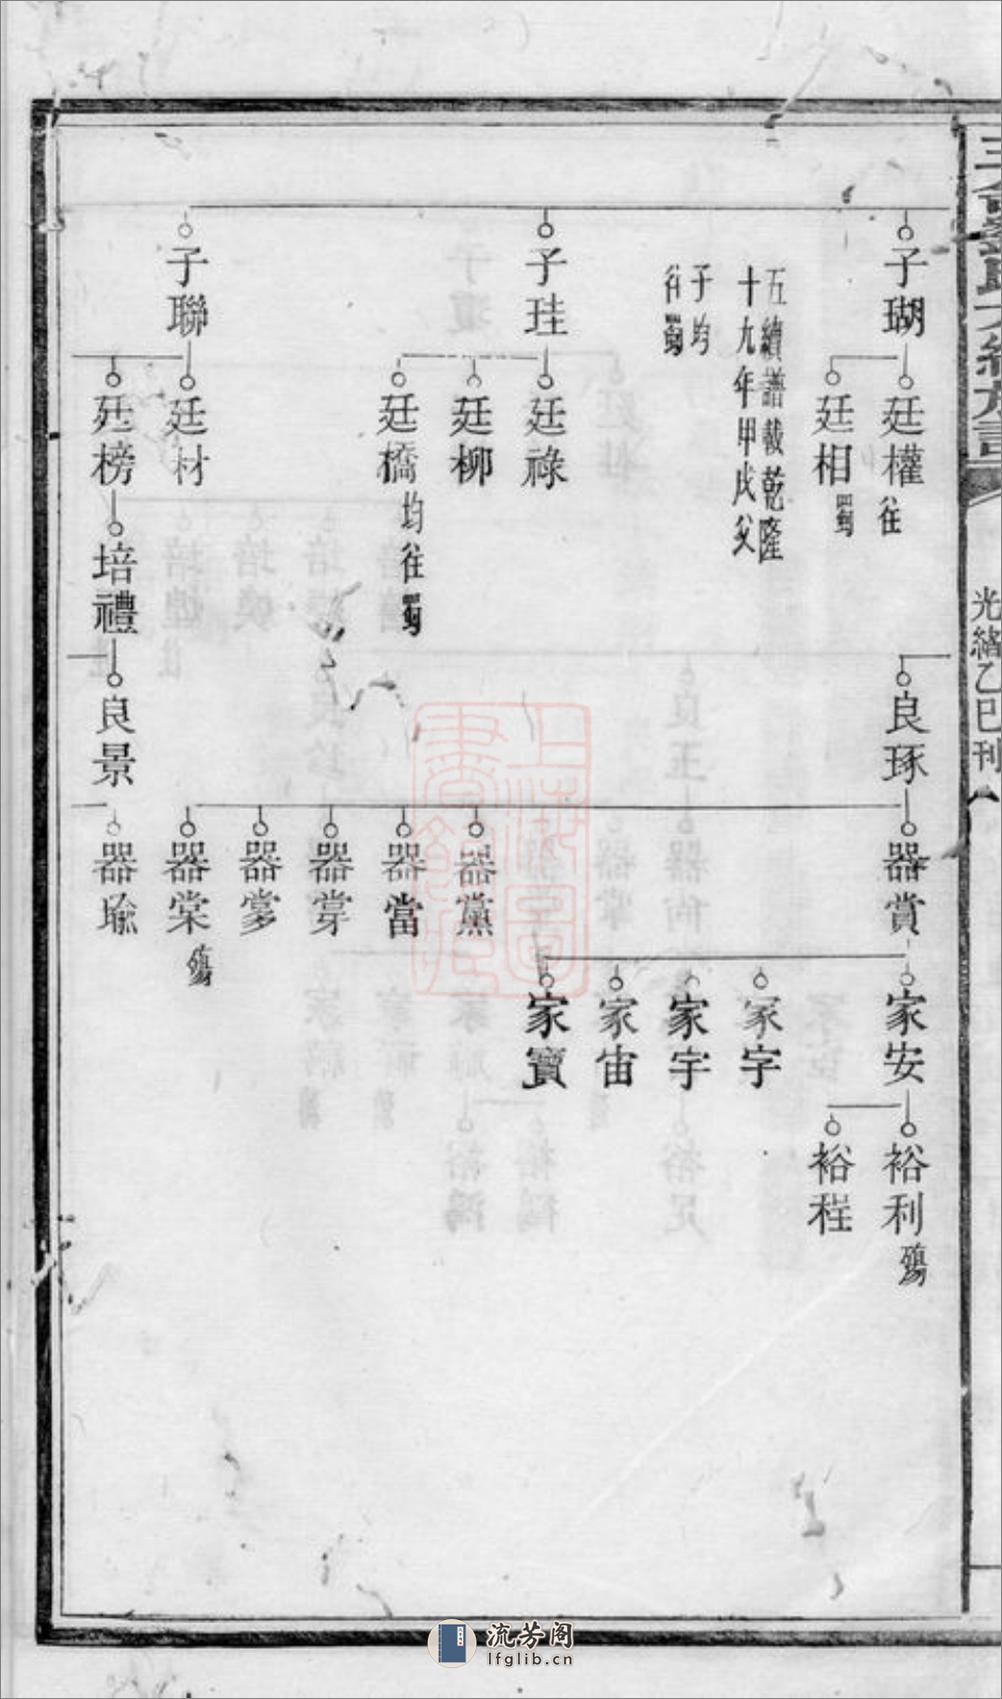 光緒乙巳刊
子瑚
廷權
往
廷相
蜀
五續譜載乾隆
十九年甲戌父
子均
往蜀
子珪
廷祿
廷柳
廷橋
均往蜀
子聯
廷材
廷榜
培禮
良景
器瑜
良琢
器賞
器黨
器當
器棠
殤
家安
家字
家宇
家宙
家寶
裕利
殤
裕程
上海圖書館藏
流芳阁
lfglib.cn